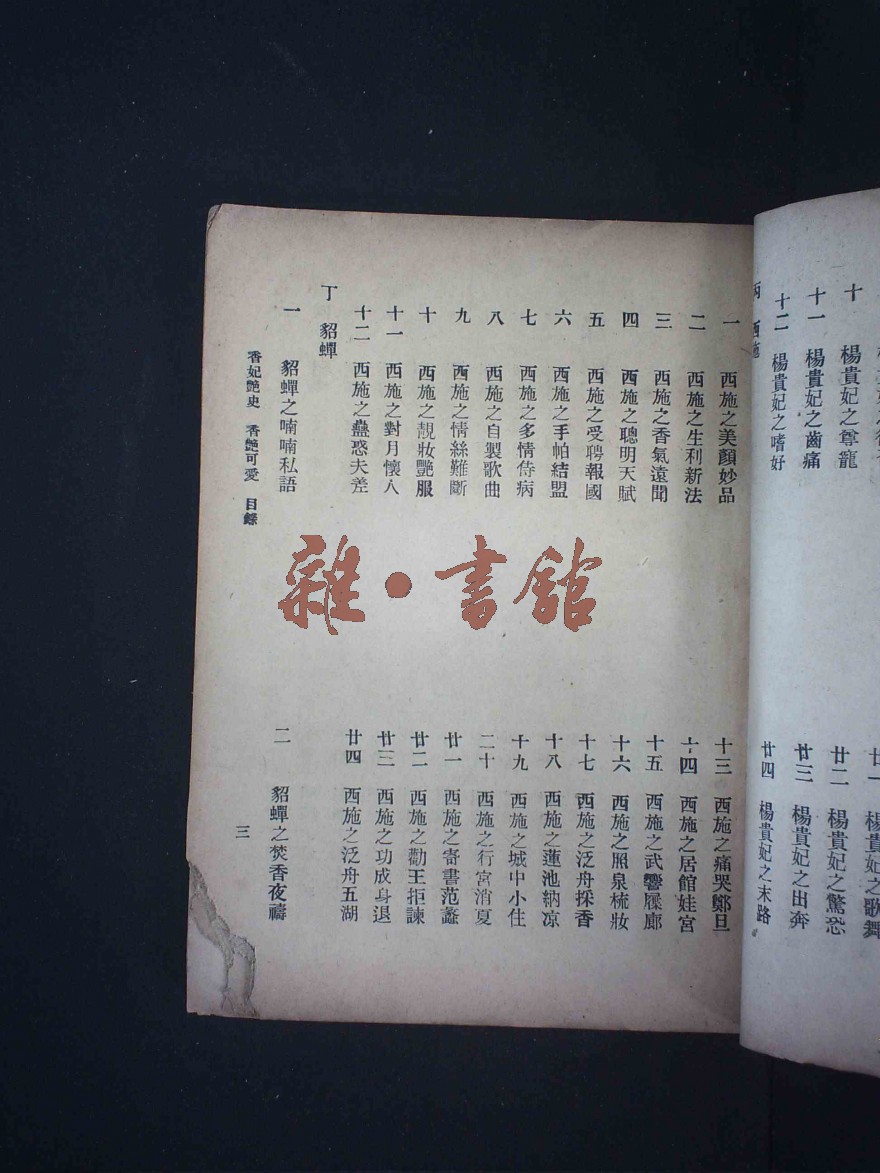 十 楊貴妃之尊寵
十一 楊貴妃之齒痛
十二 楊貴妃之嗜好
廿一 楊貴妃之歌舞
廿二 楊貴妃之驚恐
廿三 楊貴妃之出奔
廿四 楊貴妃之末路
丙 西施
一 西施之美顏妙品
二 西施之生利新法
三 西施之香氣遠聞
四 西施之聰明天賦
五 西施之受聘報國
六 西施之手帕結盟
七 西施之多情侍病
八 西施之自製歌曲
九 西施之情絲難斷
十 西施之靚妝艷服
十一 西施之對月懷人
十二 西施之蠱惑夫差
十三 西施之痛哭鄭旦
十四 西施之居館娃宮
十五 西施之武響屧廊
十六 西施之照泉梳妝
十七 西施之泛舟採香
十八 西施之蓮池納凉
十九 西施之城中小住
二十 西施之行宮消夏
廿一 西施之寄書范蠡
廿二 西施之勸王拒諫
廿三 西施之功成身退
廿四 西施之泛舟五湖
丁 貂蟬
一 貂蟬之喃喃私語
二 貂蟬之焚香夜禱
香妃艷史 香艷可愛 目錄
三
雜·書館